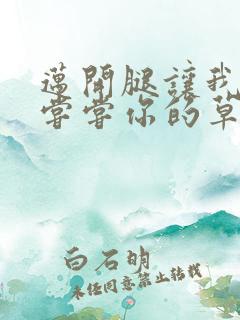 邁開腿讓我
嘗嘗你的草
白石明
未经同意禁止转载